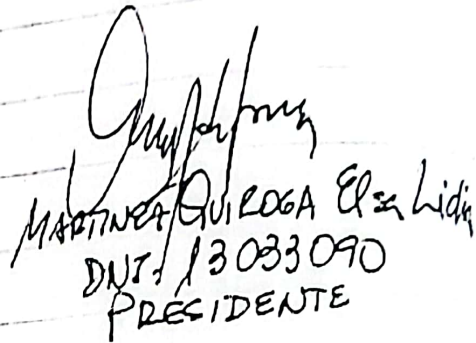 MARTINEZ QUIROGA Elsa Lidia
DNI. 13033090
PRESIDENTE